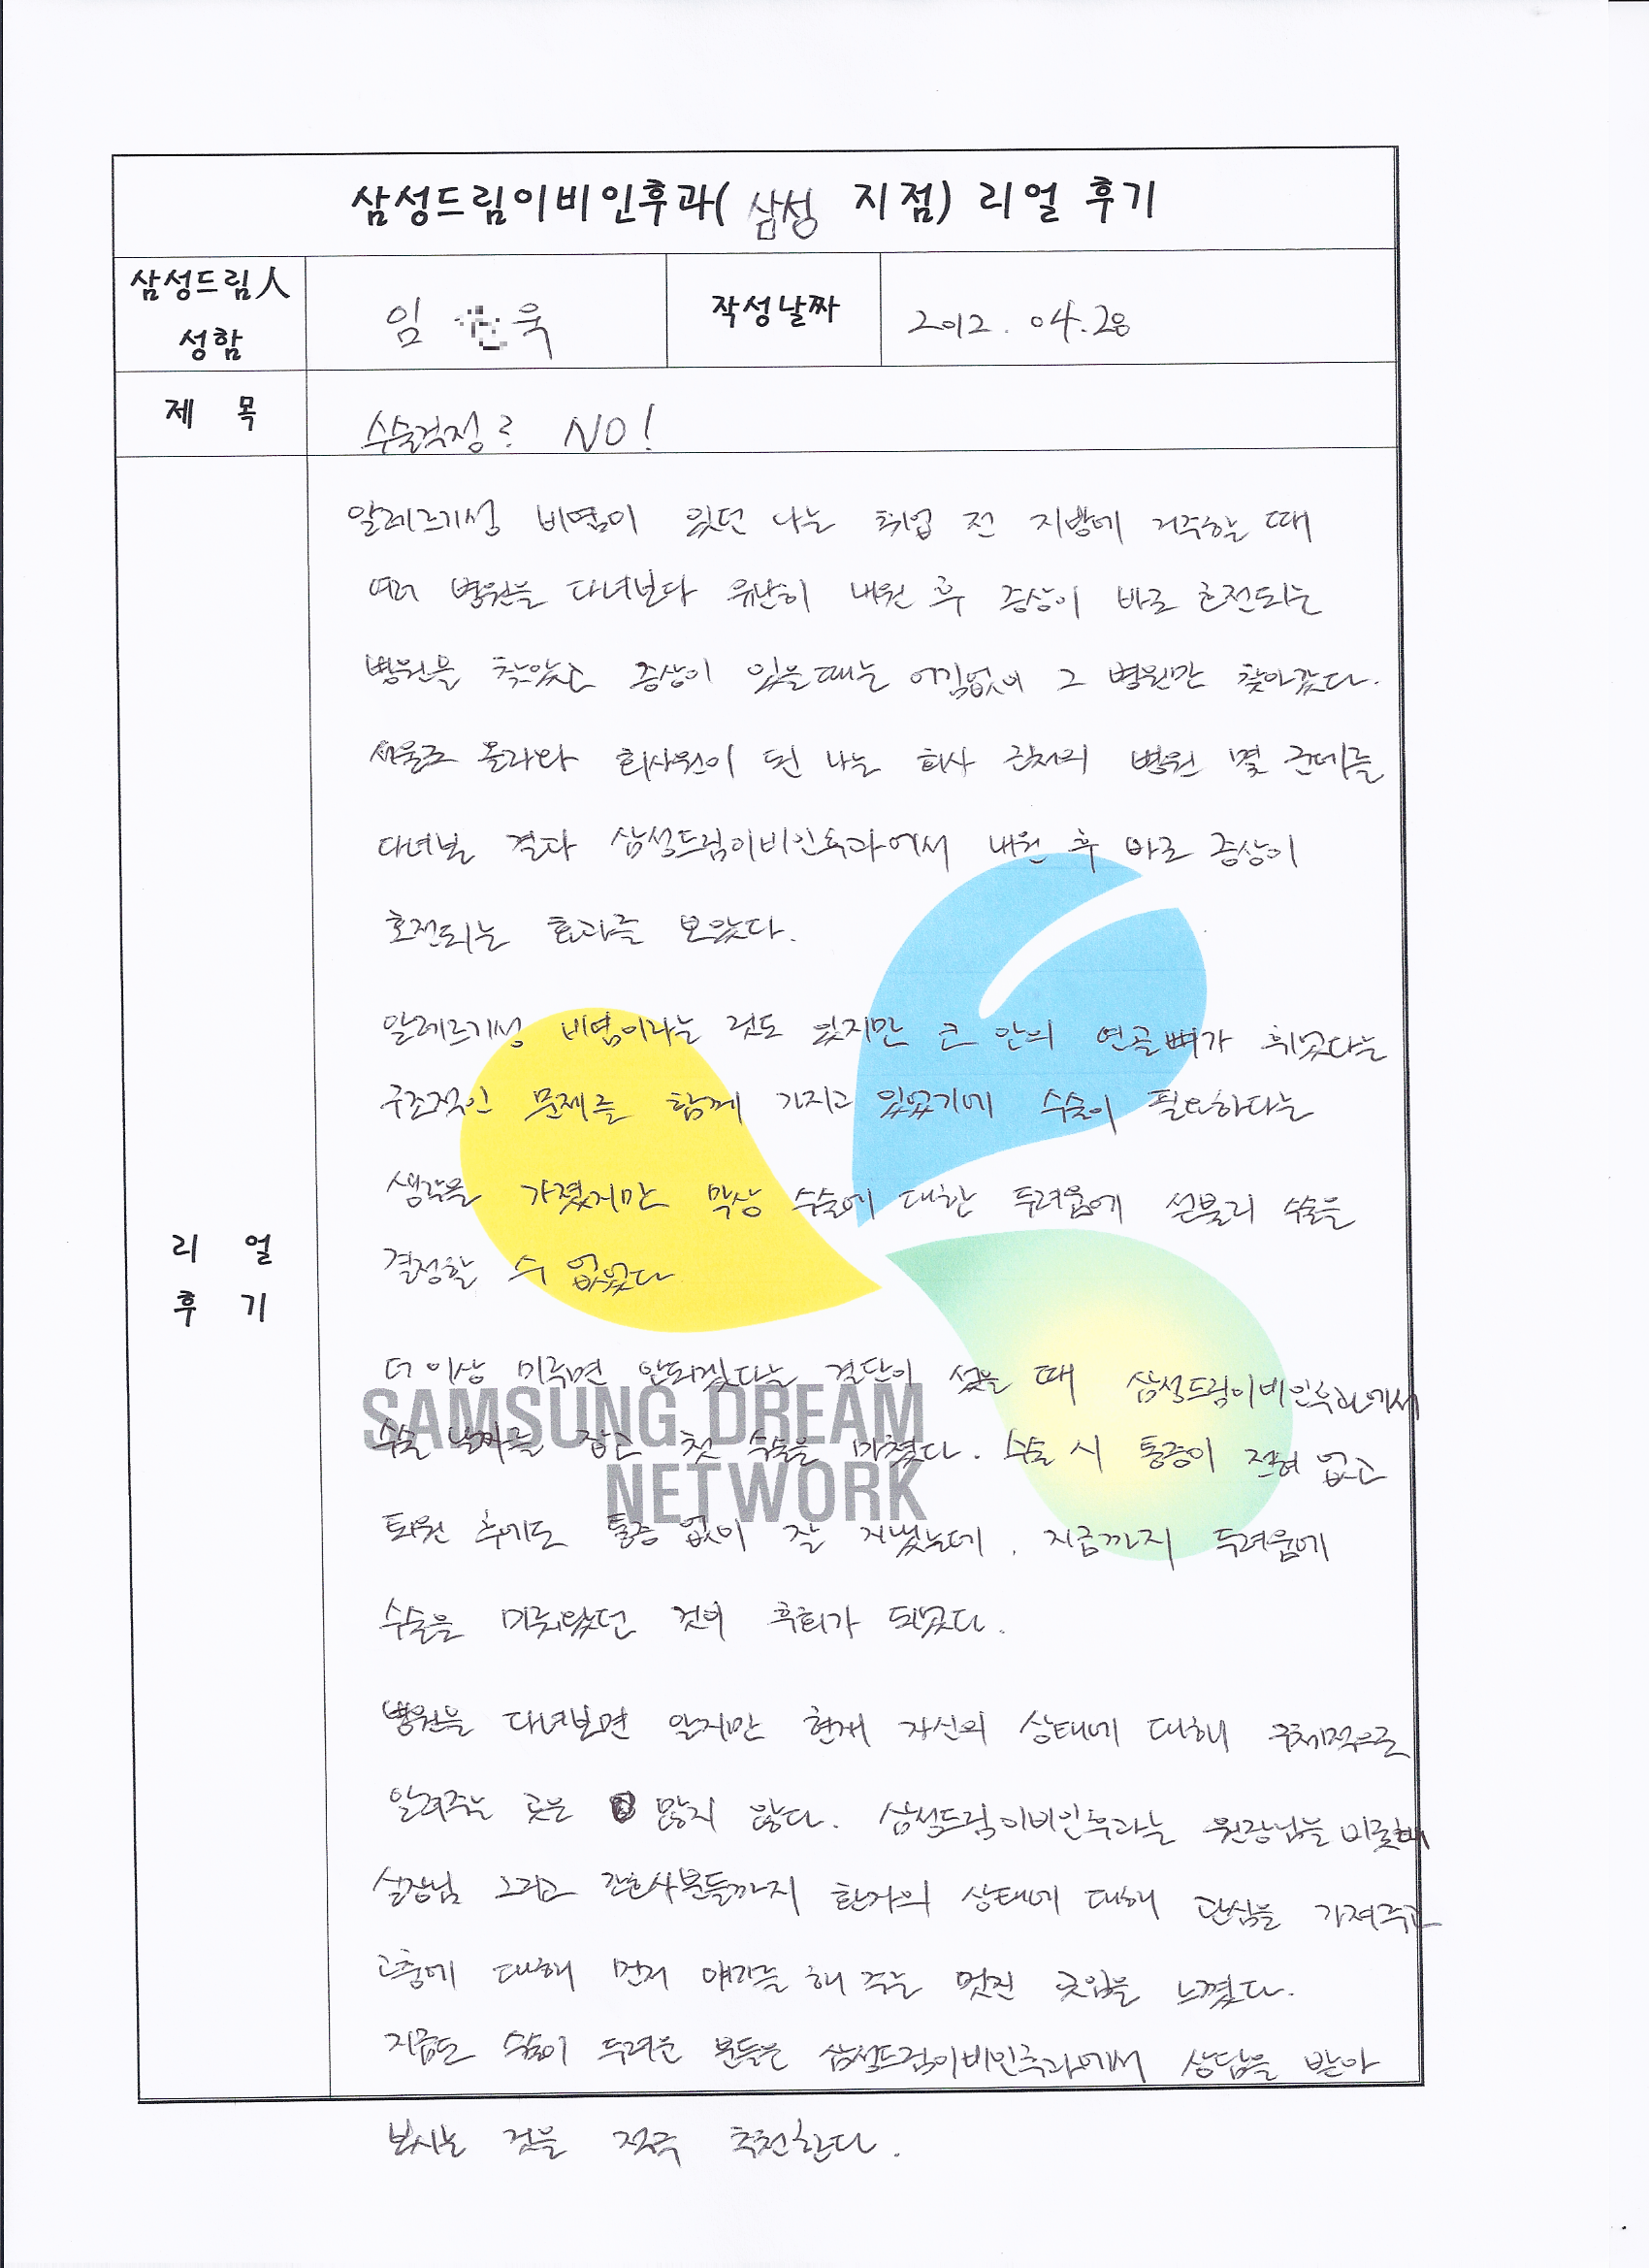 삼성드림이비인후과( 삼성 지점) 리얼 후기
삼성드림人 성함
임 욱
작성날짜
2012. 04.28
제 목
수술걱정? NO!
리 얼 후 기
알레르기성 비염이 있던 나는 취업 전 지방에 거주하는 때
여러 병원을 다녀보다 유난히 내원 후 증상이 바로 호전되는
병원을 찾았고 증상이 있을때는 어김없이 그 병원만 찾아갔다.
서울로 올라와 회사원이 된 나는 회사 근처의 병원 몇 군데를
다녀본 결과 삼성드림이비인후과에서 내원 후 바로 증상이
호전되는 효과를 보았다.
알레르기성 비염이라는 것도 있지만 코 안의 연골뼈가 휘었다는
구조적인 문제를 함께 가지고 있었기에 수술이 필요하다는
생각을 가졌지만 막상 수술에 대한 두려움에 섣불리 수술을
결정할 수 없었다.
더 이상 미루면 안되겠다는 결단이 섰을 때 삼성드림이비인후과에서
수술 날짜를 잡고 첫 수술을 마쳤다. 수술 시 통증이 전혀 없고
퇴원 후에도 통증 없이 잘 지냈는데, 지금까지 두려움에
수술을 미뤄왔던 것이 후회가 되었다.
병원을 다녀보면 알지만 현재 자신의 상태에 대해 구체적으로
알려주는 곳은 많지 않다. 삼성드림이비인후과는 원장님을 비롯해
실장님 그리고 간호사분들까지 환자의 상태에 대해 관심을 가져주고
고충에 대해 먼저 얘기를 해 주는 멋진 곳임을 느꼈다.
지금도 수술이 두려운 분들은 삼성드림이비인후과에서 상담을 받아
보시는 것을 적극 추천한다.
SAMSUNG DREAM
NETWORK